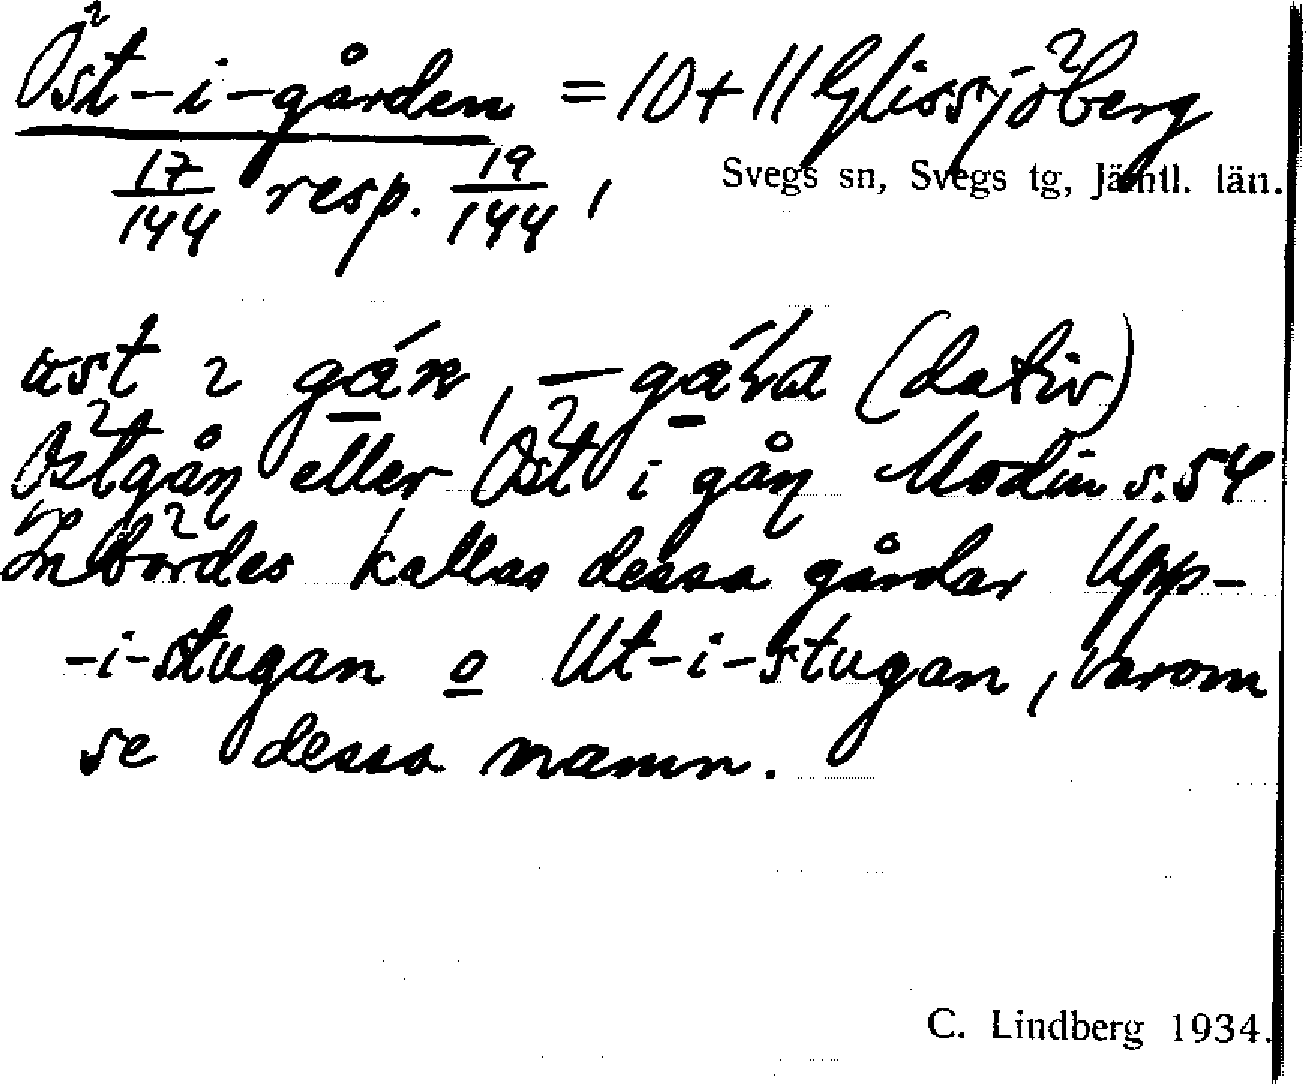 Öst-i-gården = 10 + 11 Glissjöberg
17/144 resp. 19/144, Svegs sn, Svegs tg, Jämtl. län.
(dativ)
Östgåη eller Öst i gåη Modin s. 54
Inbördes kallas dessa gårdar Upp-
-i-stugan o Ut-i-stugan, varom
se dessa namn.
C. Lindberg 1934.